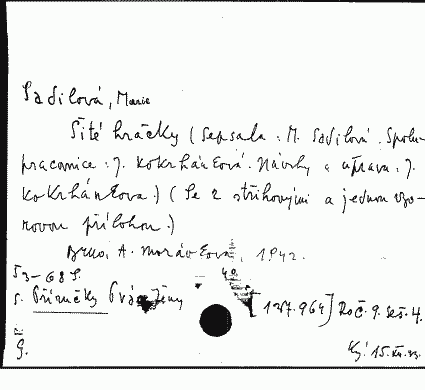 Sadilová, Marie
Šité hračky (Sepsala: M. Sadilová. Spolu-
pracovnice: J. Kokrhánková. Návrhy a úprava: J.
Kokrhánkova.) (Se 2 střihovými a jednou vzo-
rovou přílohou.)
Brno, A. Moráv 1942.
53-68 S.
S. Příručky ženy [127.964] Roč. 9. seš. 4.
9. 15.